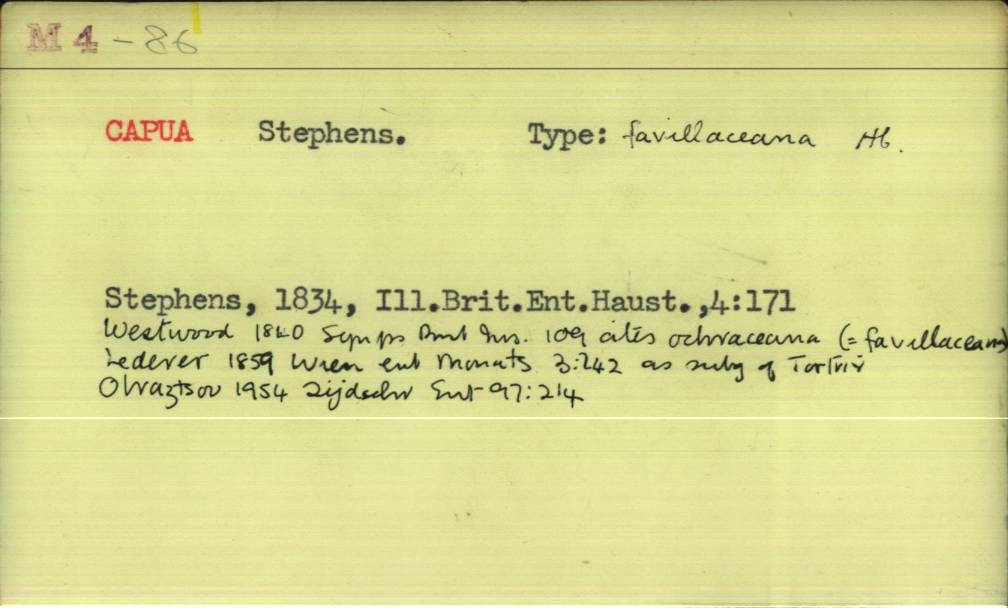 M 4 - 86
CAPUA Stephens. Type: favillaceana Hb.
Stephens, 1834, Ill.Brit.Ent.Haust.,4:171
Westwood 1840 Synops Brit Ins. 109 cites ochraceana (= favillaceana)
Lederer 1859 Wien ent Monats 3:242 as subg of Tortrix
Obraztsov 1954 Tijdschr Ent 97:214